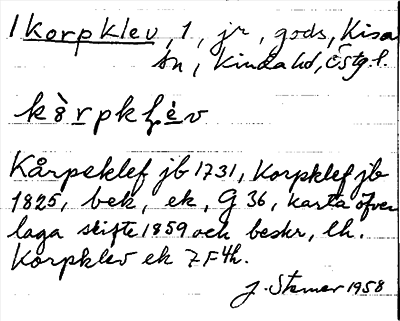 1 Korpklev, 1, jr, gods, Kisa
sn, Kinda hd, Östg l.
kò̱rpkḷè̱v
Kårpeklef jb 1731, Korpklef jb
1825, bek, ek, G 36, karta öfver
laga skifte 1859 och beskr, lh.
Korpklev ek 7F4h.
J. Stemer 1958